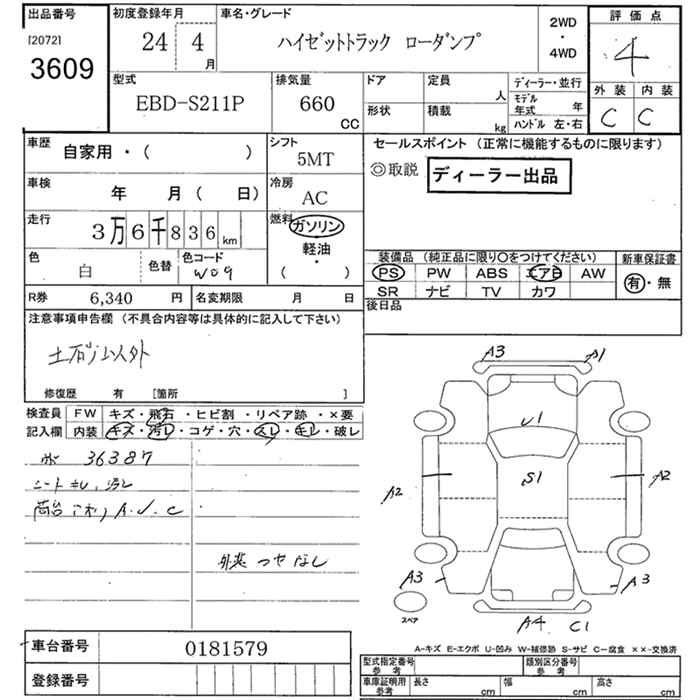 出品番号
[2072]
3609
初度登録年月
24 4 月
車名・グレード
ハイゼットトラック ローダンプ
2WD
・
4WD
評価点
4
外装 内装
C C
型式
EBD-S211P
排気量
660 CC
ドア
形状
定員 人
積載 kg
ディーラー・並行
モデル年式 年
ハンドル 左・右
車歴
自家用・( )
シフト
5MT
車検
年 月( 日)
冷房
AC
走行
3万6千836km
燃料
ガソリン
軽油・
( )
色
白
色替
色コード
W09
R券 6,340 円
名変期限 月 日
セールスポイント (正常に機能するものに限ります)
◎取説 ディーラー出品
装備品 (純正品に限り○をつけてください)
PS PW ABS エアB AW
SR ナビ TV カワ
新車保証書
有・無
後日品
注意事項申告欄 (不具合内容等は具体的に記入して下さい)
修復歴 有 [箇所 ]
検査員記入欄
FW キズ・飛石・ヒビ割・リペア跡・×要
内装 キズ・汚レ・コゲ・穴・スレ・キレ・破レ
36387
A.U.C
A3
A1
U1
S1
A2
A2
A3
A3
スペア
A4 C1
A-キズ E-エクボ U-凹み W-補修跡 S-サビ C-腐食 ××-交換済
車台番号 0181579
登録番号
型式指定番号 参考
類別区分番号 参考
車庫証明用 参考 長さ cm 幅 cm 高さ cm